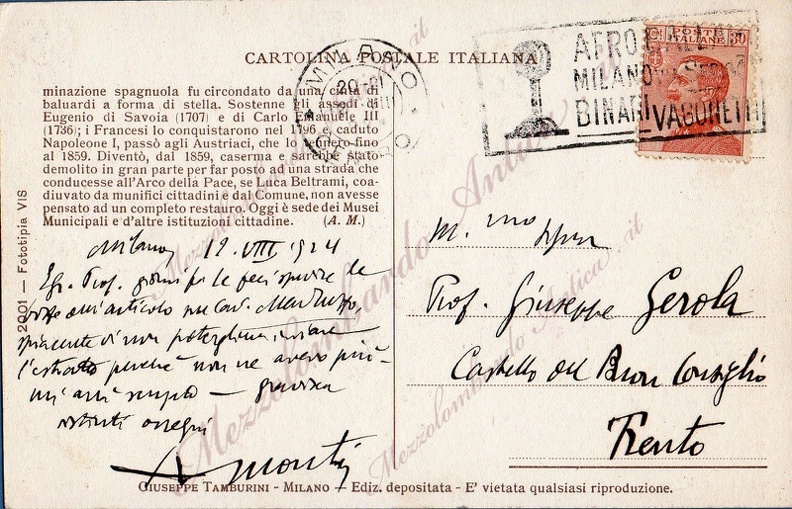 CARTOLINA POSTALE ITALIANA
minazione spagnuola fu circondato da una cinta di
baluardi a forma di stella. Sostenne gli assedi di
Eugenio di Savoia (1707) e di Carlo Emanuele III
(1736); i Francesi lo conquistarono nel 1796 e, caduto
Napoleone I, passò agli Austriaci, che lo tennero fino
al 1859. Diventò, dal 1859, caserma e sarebbe stato
demolito in gran parte per far posto ad una strada che
conducesse all'Arco della Pace, se Luca Beltrami, coa-
diuvato da munifici cittadini e dal Comune, non avesse
pensato ad un completo restauro. Oggi è sede dei Musei
Municipali e d'altre istituzioni cittadine. (A. M.)
Milano 12 VIII 1924
Egr. Prof. giorni fa le feci spedire le
articolo sul Card. Madruzzo,
spiacente di non potergliene inviare
l'estratto perché non ne avevo più
A Monti
2001 — Fototipia VIS
MILANO
POSTE
ITALIANE
30
MILANO
BINARI VAGONETTI
Prof. Giuseppe Gerola
Castello del Buon Consiglio
Trento
GIUSEPPE TAMBURINI - MILANO — Ediz. depositata - E' vietata qualsiasi riproduzione.
Mezzolombardo Antica.it
Mezzolombardo Antica.it